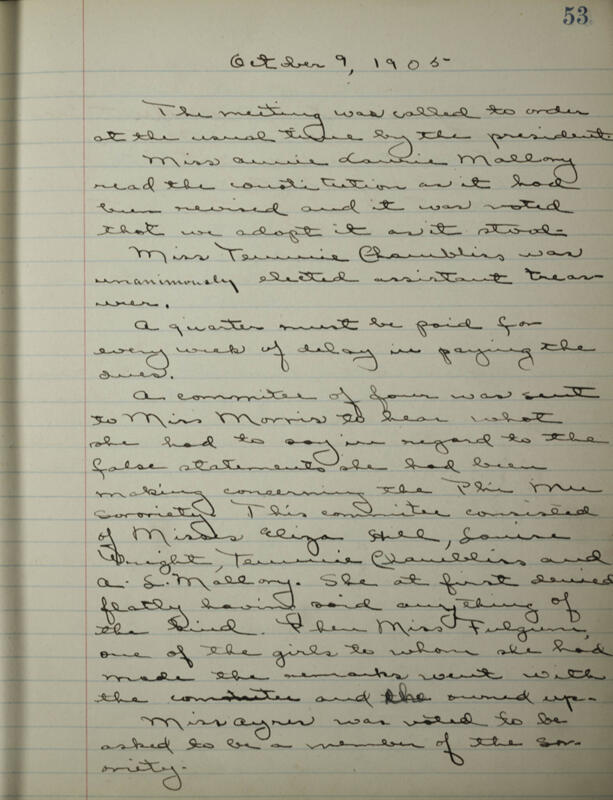 53
October 9, 1905
The meeting was called to order
at the usual time by the president.
Miss Annie Lannie Mallory
read the constitution as it had
been revised and it was voted
that we adopt it as it stood.
Miss Temmie Chambliss was
unanimously elected assistant treas-
urer.
A quarter must be paid for
every week of delay in paying the
dues.
A commitee of four was sent
to Miss Morris to hear what
she had to say in regard to the
false statements she had been
making concerning the Phi Mu
sororiety. This commitee consisted
of Misses Eliza Hill, Louise
Wright, Temmie Chambliss and
A. L. Mallory. She at first denied
flatly having said anything of
the kind. Then Miss Fulgum,
one of the girls to whom she had
made the remarks went with
the commitee and she owned up.
Miss Ayres was voted to be
asked to be a member of the so-
riety.